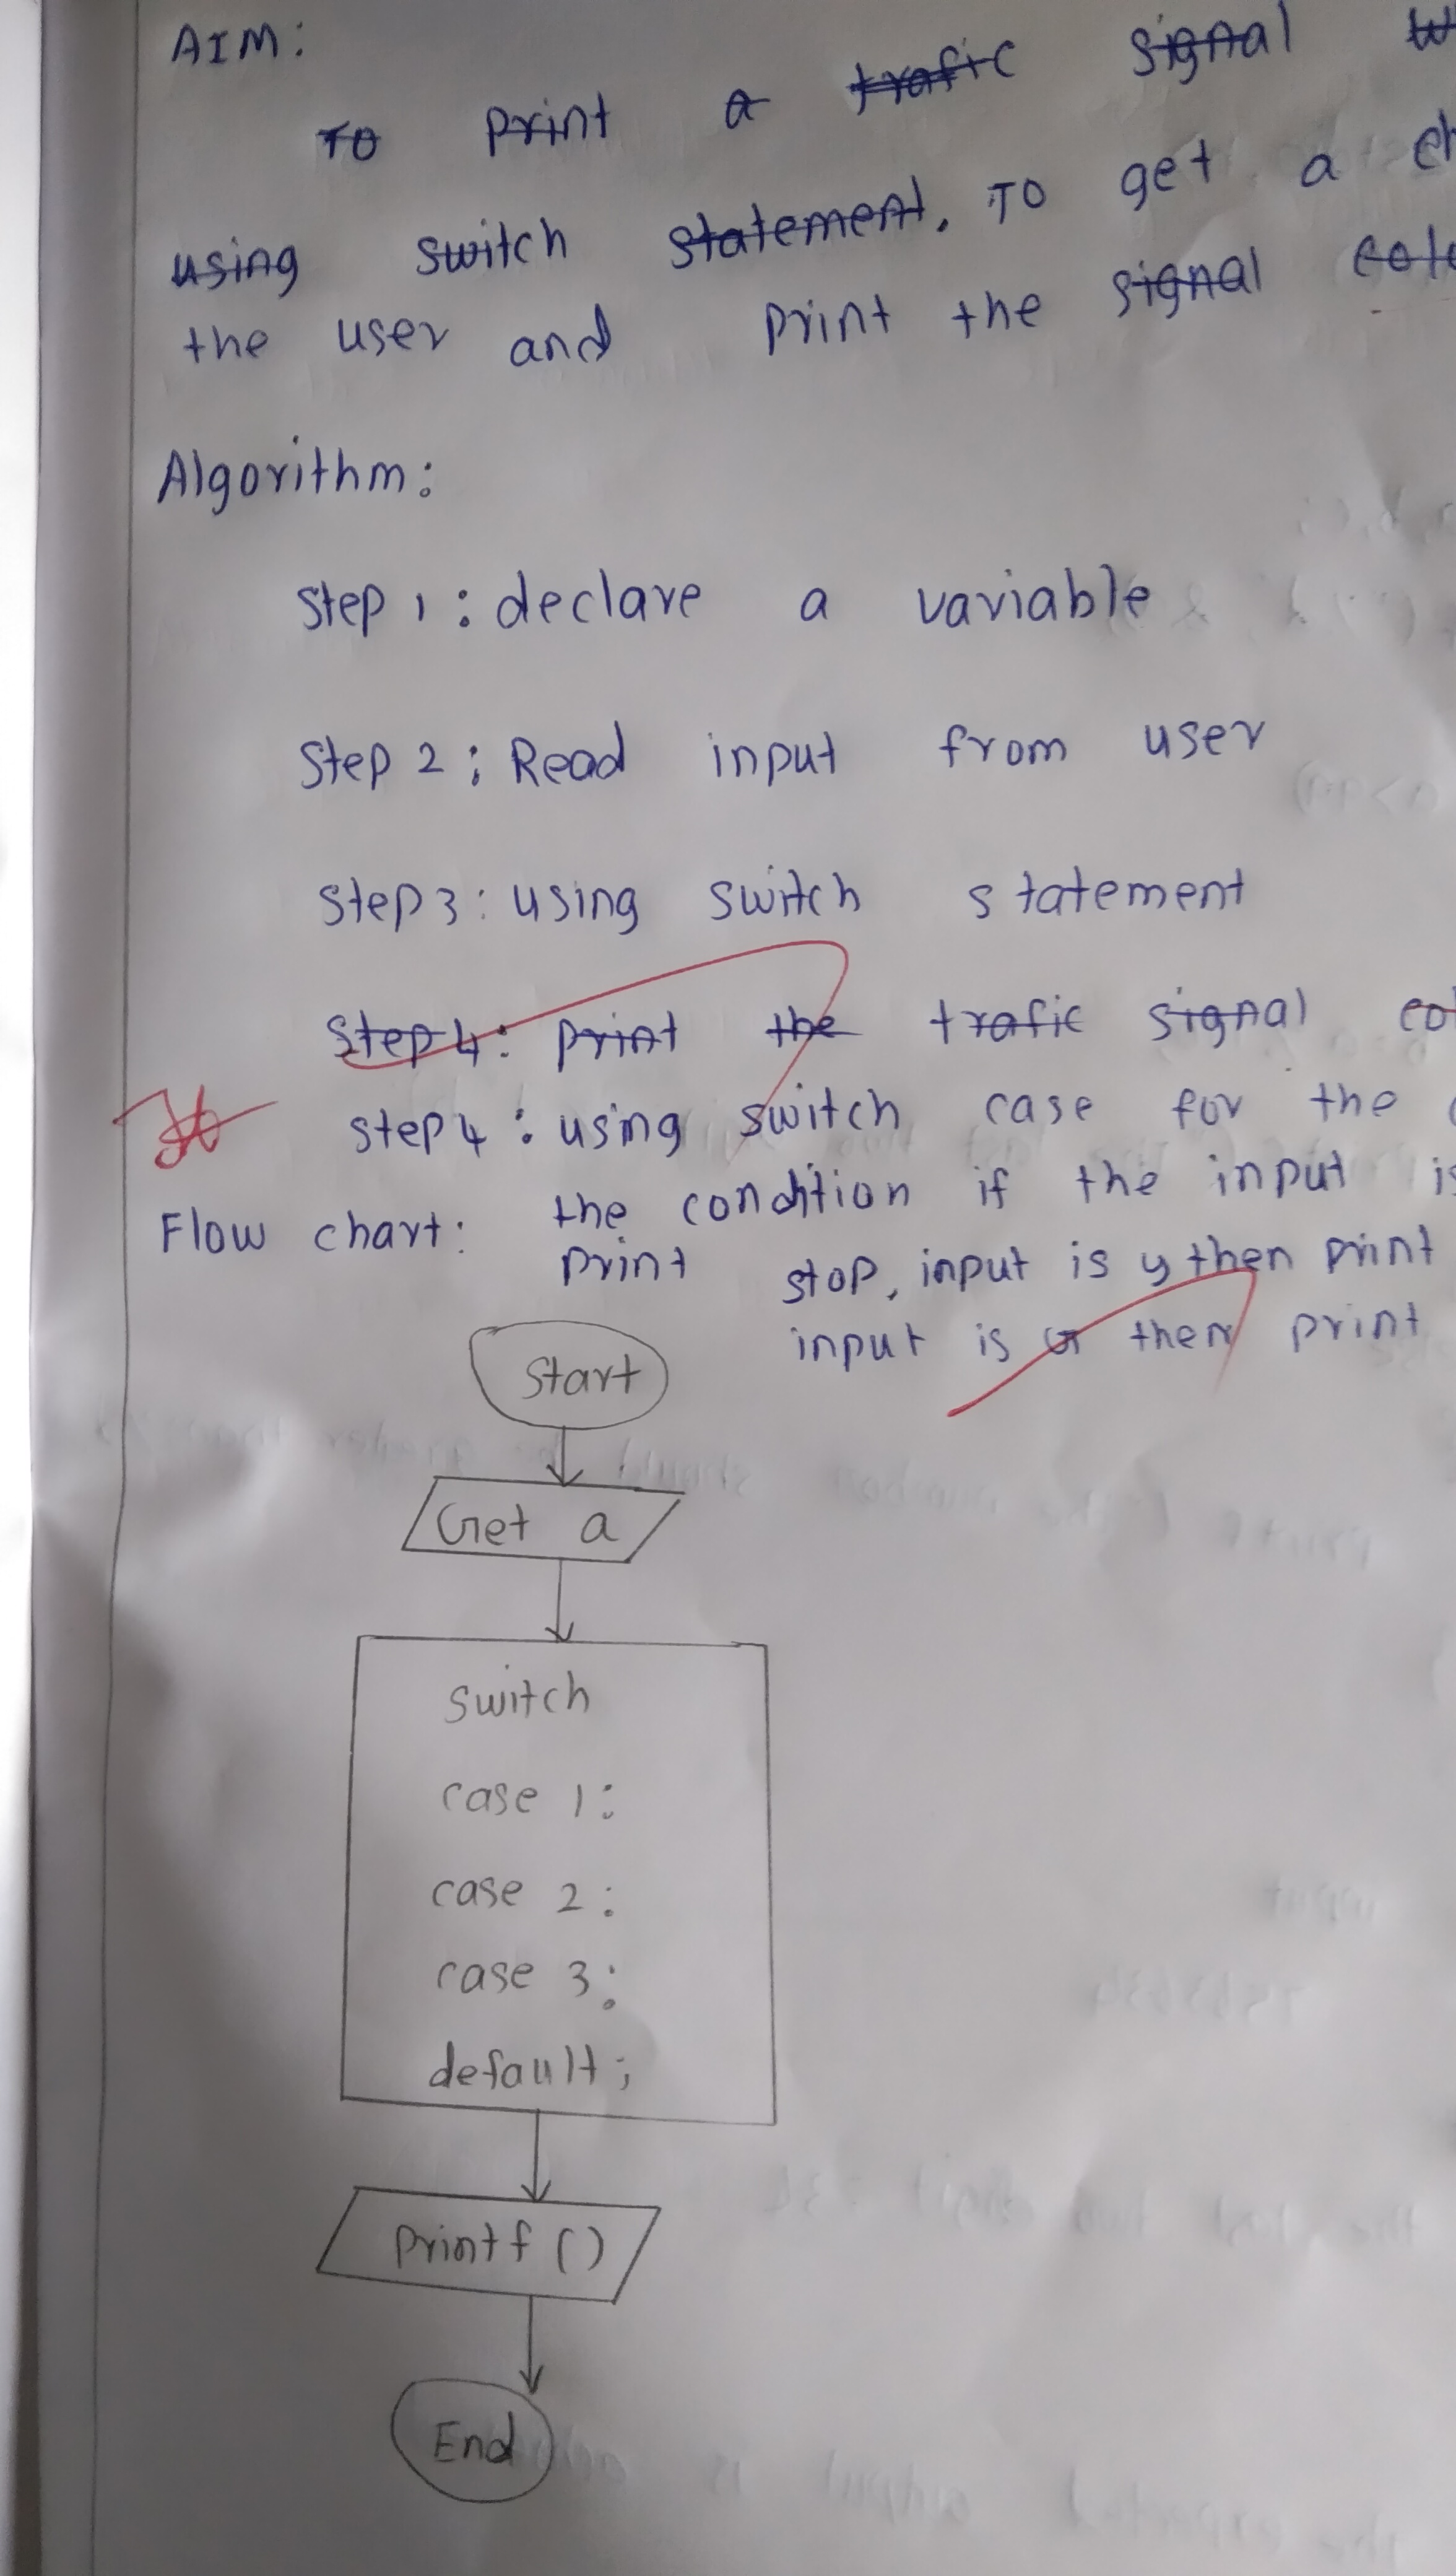 AIM:
To print a trafic signal
using switch statement. To get a
the user and print the signal
Algorithm:
Step 1: declare a variable
Step 2: Read input from user
Step 3: using switch statement
Step 4: print the trafic signal
step 4: using switch case for the
Flow chart: the condition if the input is
print stop, input is y then print
input is G then print
Start
Get a
switch
case 1:
case 2:
case 3:
default;
printf ()
End